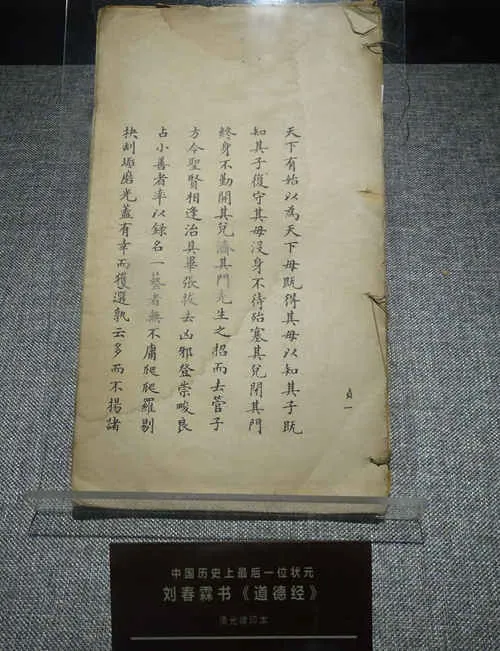 天下有始以為天下母既得其母以知其子既
知其子復守其母没身不待殆塞其兌閉其門
終身不勤開其兌濟其門先生之招而去管子
方今聖賢相逢治具畢張拔去凶邪登崇畯良
占小善者率以錄名一藝者無不庸爬爬羅剔
抉刮琢磨光蓋有幸而獲選孰云多而不揚諸
貞一
中国历史上最后一位状元
刘春霖书《道德经》
清光绪印本